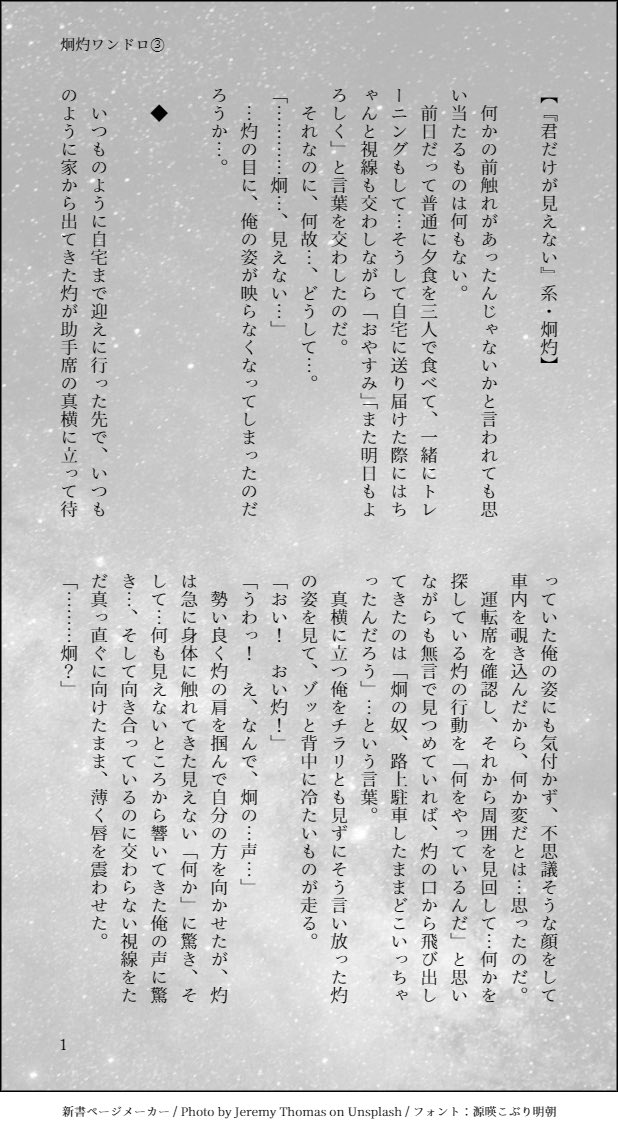 炯灼ワンドロ③
【『君だけが見えない』系・炯灼】
　何かの前触れがあったんじゃないかと言われても思
い当たるものは何もない。
　前日だって普通に夕食を三人で食べて、一緒にトレ
ーニングもして…そうして自宅に送り届けた際にはち
ゃんと視線も交わしながら「おやすみ」「また明日もよ
ろしく」と言葉を交わしたのだ。
　それなのに、何故…、どうして…。
「…………炯…、見えない…」
　…灼の目に、俺の姿が映らなくなってしまったのだ
ろうか…。
◆
　いつものように自宅まで迎えに行った先で、いつも
のように家から出てきた灼が助手席の真横に立って待
っていた俺の姿にも気付かず、不思議そうな顔をして
車内を覗き込んだから、何か変だとは…思ったのだ。
　運転席を確認し、それから周囲を見回して…何かを
探している灼の行動を「何をやっているんだ」と思い
ながらも無言で見つめていれば、灼の口から飛び出し
てきたのは「炯の奴、路上駐車したままどこいっちゃ
ったんだろう」…という言葉。
　真横に立つ俺をチラリとも見ずにそう言い放った灼
の姿を見て、ゾッと背中に冷たいものが走る。
「おい！　おい灼！」
「うわっ！　え、なんで、炯の…声…」
　勢い良く灼の肩を掴んで自分の方を向かせたが、灼
は急に身体に触れてきた見えない「何か」に驚き、そ
して…何も見えないところから響いてきた俺の声に驚
き…、そして向き合っているのに交わらない視線をた
だ真っ直ぐに向けたまま、薄く唇を震わせた。
「………炯？」
1
新書ページメーカー / Photo by Jeremy Thomas on Unsplash / フォント：源暎こぶり明朝